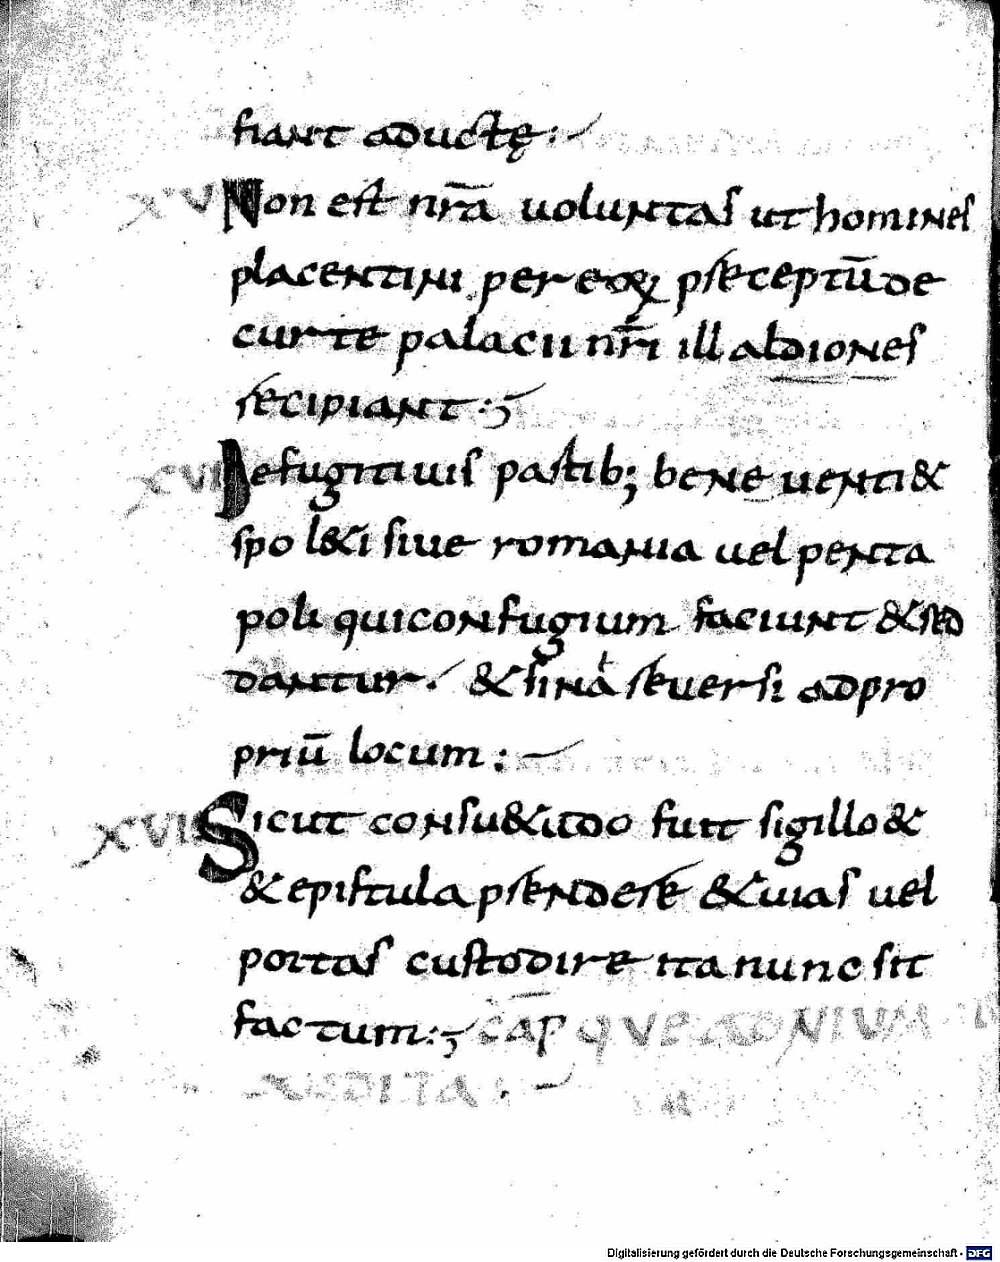 fiant aductę:
XV Non est nr̄a uoluntas ut homines
placentini per eoꝝ preceptū de
curte palacii nr̄i ill aldiones
recipiant:;
XVI De fugitiuis partib; beneuenti &
spol&i siue romania uel penta
poli qui confugium faciunt & red
dantur. & sint reuersi ad pro
priū locum:
XVII Sicut consu&udo fuit sigillo &
& epistula prendere & uias uel
portas custodire ita nunc sit
factum:; CAP̄
Digitalisierung gefördert durch die Deutsche Forschungsgemeinschaft - DFG